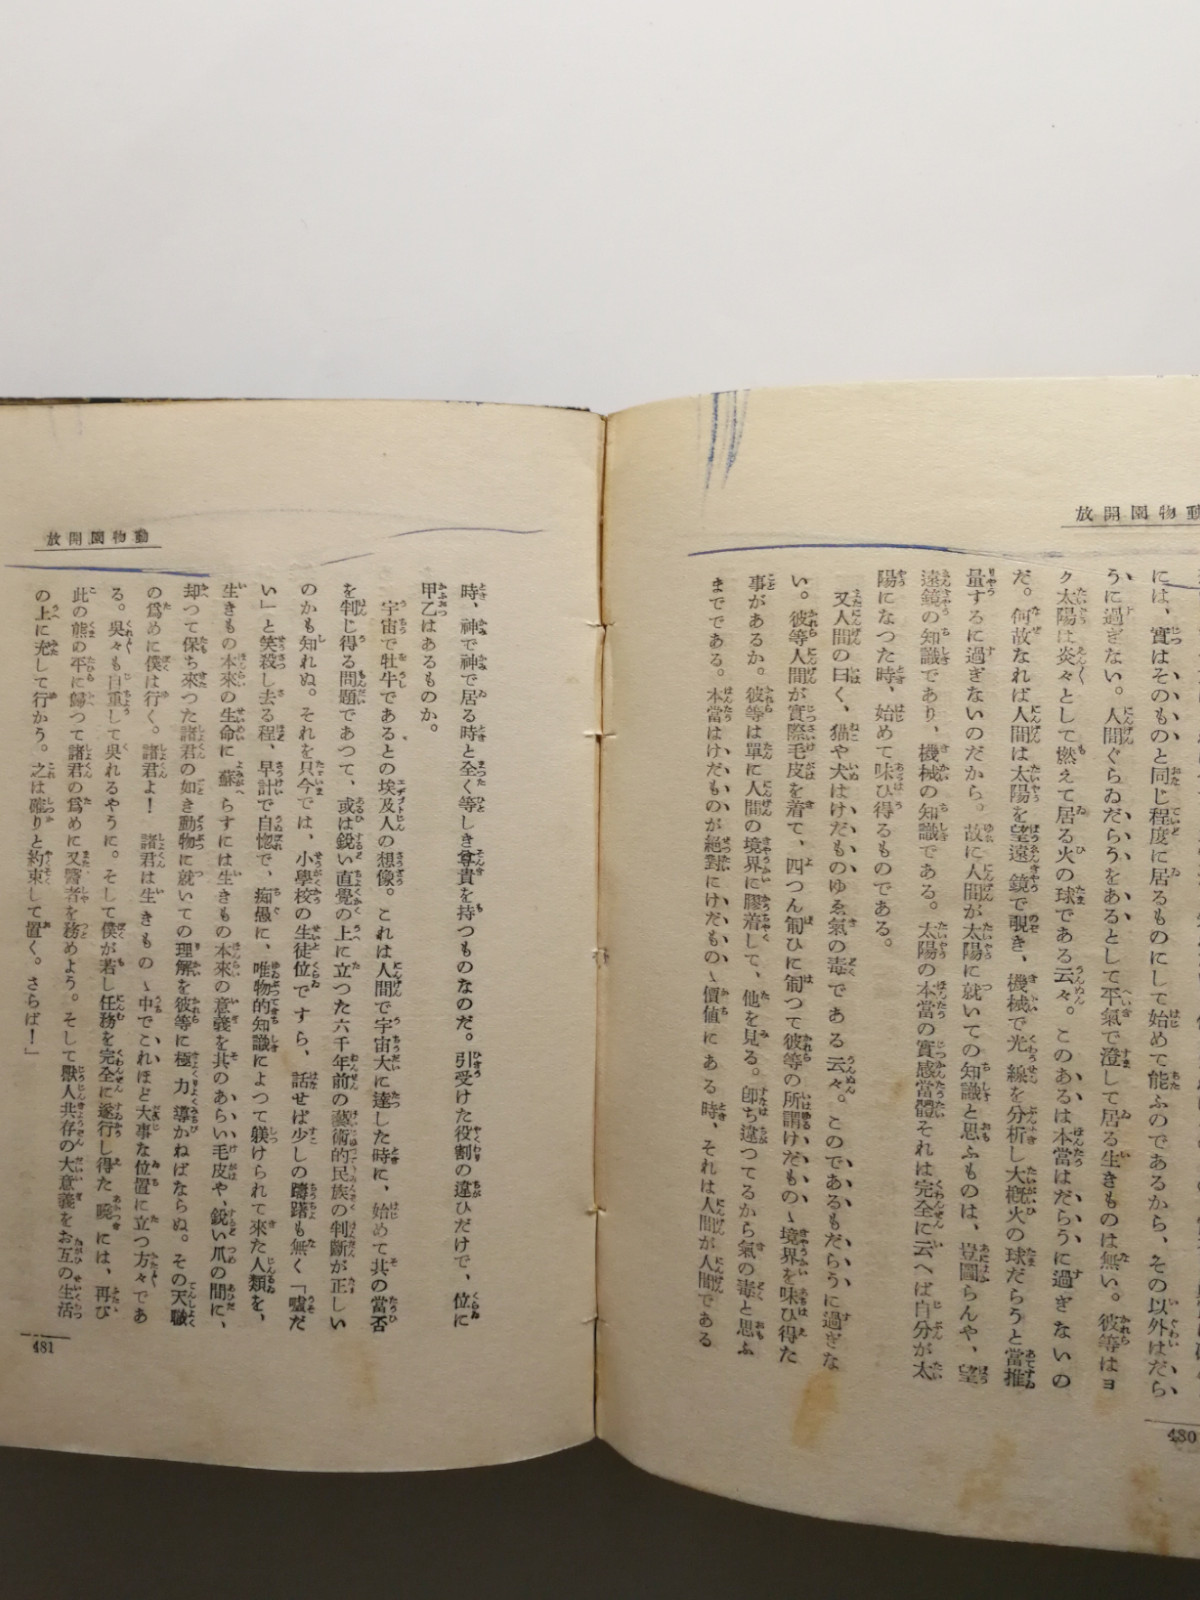 動物園開放
には、實はそのものと同じ程度に居るものにして始めて能ふのであるから、その以外はだら
うに過ぎない。人間ぐらゐだらうをあるとして平氣で澄して居る生きものは無い。彼等はヨ
ク太陽は炎々として燃えて居る火の球である云々。このあるは本當はだらうに過ぎないの
だ。何故なれば人間は太陽を望遠鏡で覗き、機械で光線を分析し大槪火の球だらうと當推
量するに過ぎないのだから。故に人間が太陽に就いての知識と思ふものは、豈圖らんや、望
遠鏡の知識であり、機械の知識である。太陽の本當の實感當體それは完全に云へば自分が太
陽になつた時、始めて味ひ得るものである。
又人間の曰く、猫や犬はけだものゆゑ氣の毒である云々。このであるもだらうに過ぎな
い。彼等人間が實際毛皮を着て、四つん匍ひに匍つて彼等の所謂けだもの〻境界を味ひ得た
事があるか。彼等は單に人間の境界に膠着して、他を見る。卽ち違つてるから氣の毒と思ふ
までである。本當はけだものが絕對にけだもの〻價値にある時、それは人間が人間である
480
動物園開放
時、神で神で居る時と全く等しき尊貴を持つものなのだ。引受けた役割の違ひだけで、位に
甲乙はあるものか。
宇宙で牡牛であるとの埃及人の想像。これは人間で宇宙大に達した時に、始めて其の當否
を判じ得る問題であつて、或は銳い直覺の上に立つた六千年前の藝術的民族の判斷が正しい
のかも知れぬ。それを只今では、小學校の生徒位ですら、話せば少しの躊躇も無く「噓だ
い」と笑殺し去る程、早計で自惚で、痴愚に、唯物的知識によつて躾けられて來た人類を、
生きもの本來の生命に蘇らすには生きもの本來の意義を其のあらい毛皮や、銳い爪の間に、
却つて保ち來つた諸君の如き動物に就いての理解を彼等に極力導かねばならぬ。その天職
の爲めに僕は行く。諸君よ！　諸君は生きもの〻中でこれほど大事な位置に立つ方々であ
る。吳々も自重して吳れるやうに。そして僕が若し任務を完全に遂行し得た曉には、再び
此の熊の平に歸つて諸君の爲めに又醫者を務めよう。そして獸人共存の大意義をお互の生活
の上に充して行かう。之は確りと約束して置く。さらば！」
481